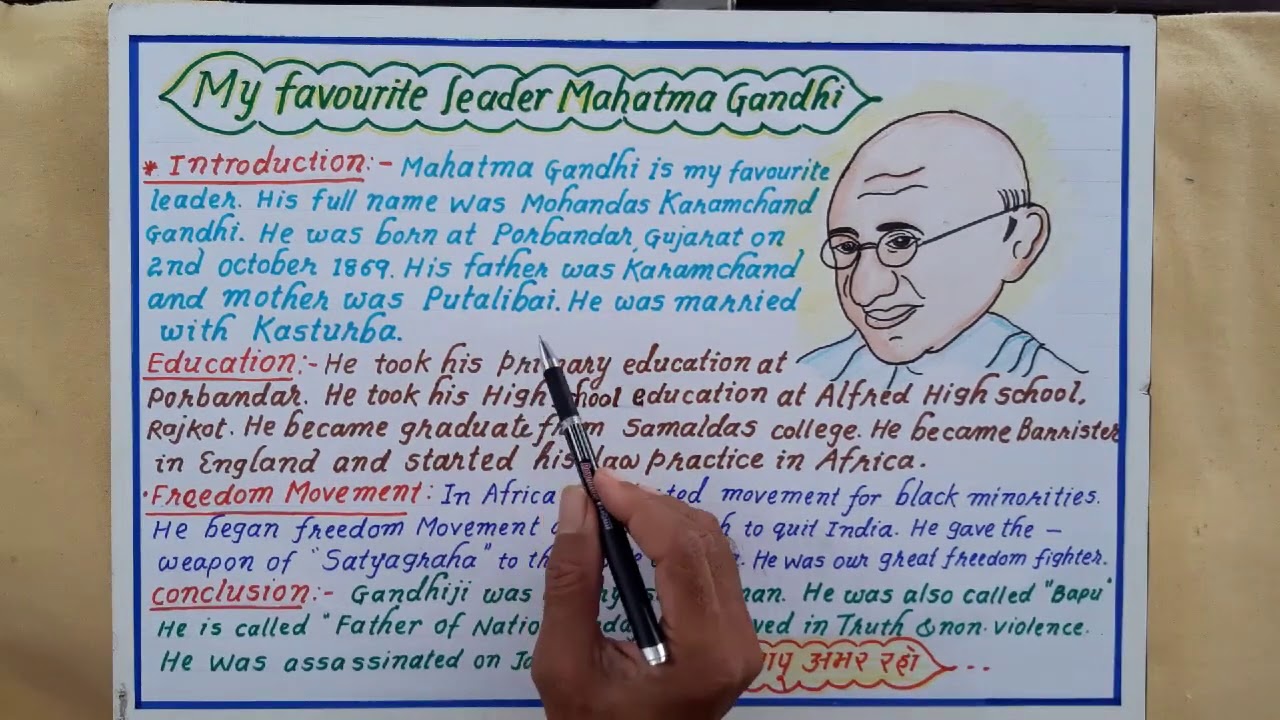 My favourite leader Mahatma Gandhi
* Introduction:- Mahatma Gandhi is my favourite
leader. His full name was Mohandas Karamchand
Gandhi. He was born at Porbandar, Gujarat on
2nd october 1869. His father was Karamchand
and mother was Putalibai. He was married
with Kasturba.
Education:- He took his primary education at
Porbandar. He took his High school education at Alfred High school,
Rajkot. He became graduate from Samaldas college. He became Barrister
in England and started his law practice in Africa.
·Freedom Movement: In Africa movement for black minorities.
He began freedom Movement to quit India. He gave the —
weapon of "Satyagraha" to He was our great freedom fighter.
conclusion:- Gandhiji was man. He was also called "Bapu"
He is called "Father of in Truth & non-violence.
He was assassinated on अमर रहो ...